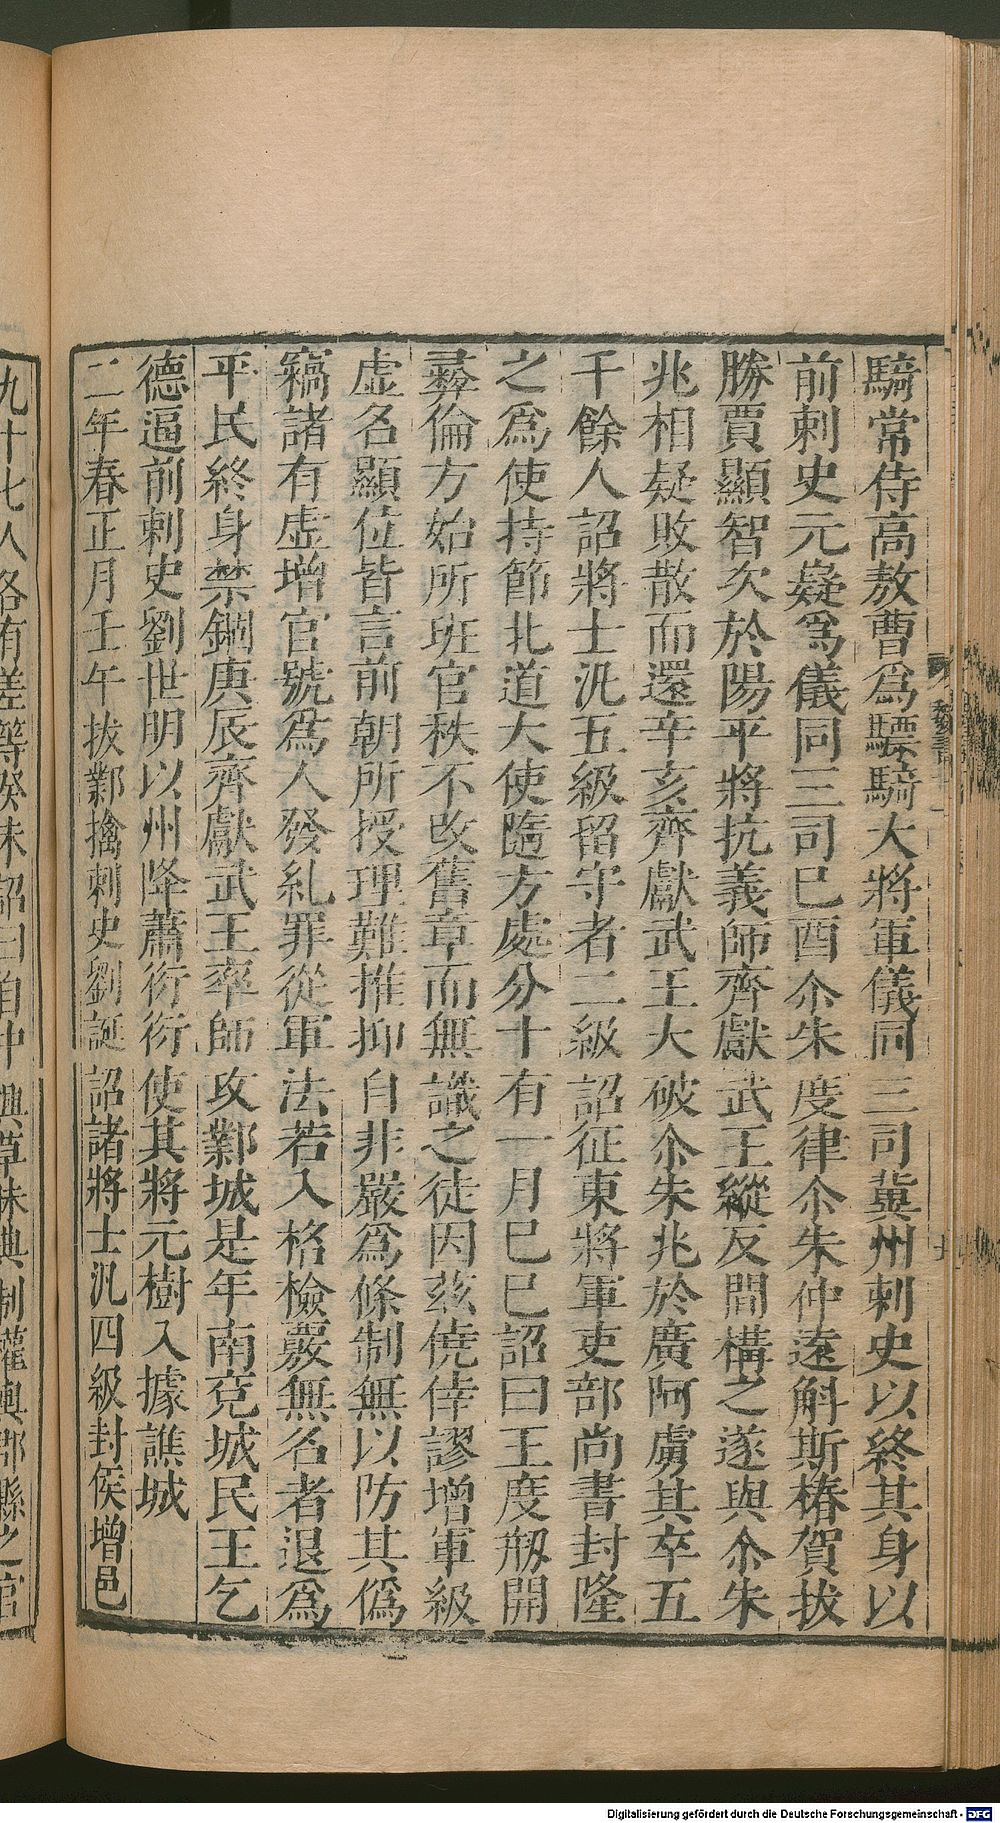 騎常侍高敖曹爲驃騎大將軍儀同三司冀州刺史以終其身以
前刺史元嶷爲儀同三司巳酉尒朱度律尒朱仲遠斛斯椿賀拔
勝賈顯智次於陽平將抗義師齊獻武王縱反間構之遂與尒朱
兆相疑敗散而還辛亥齊獻武王大破尒朱兆於廣阿虜其卒五
千餘人詔將士汎五級留守者二級詔征東將軍吏部尚書封隆
之爲使持節北道大使隨方處分十有一月巳巳詔曰王度剙開
彛倫方始所班官秩不改舊章而無識之徒因兹僥倖謬增軍級
虛名顯位皆言前朝所授理難推抑自非嚴爲條制無以防其僞
竊諸有虛增官號爲人發糺罪從軍法若入格檢覈無名者退爲
平民終身禁錮庚辰齊獻武王率師攻鄴城是年南兖城民王乞
德逼前刺史劉世明以州降蕭衍衍使其將元樹入據譙城
二年春正月壬午拔鄴擒刺史劉誕詔諸將士汎四級封侯增邑
九十七人各有差等癸未詔曰自中興草昧典制權輿郡縣之官
Digitalisierung gefördert durch die Deutsche Forschungsgemeinschaft - DFG